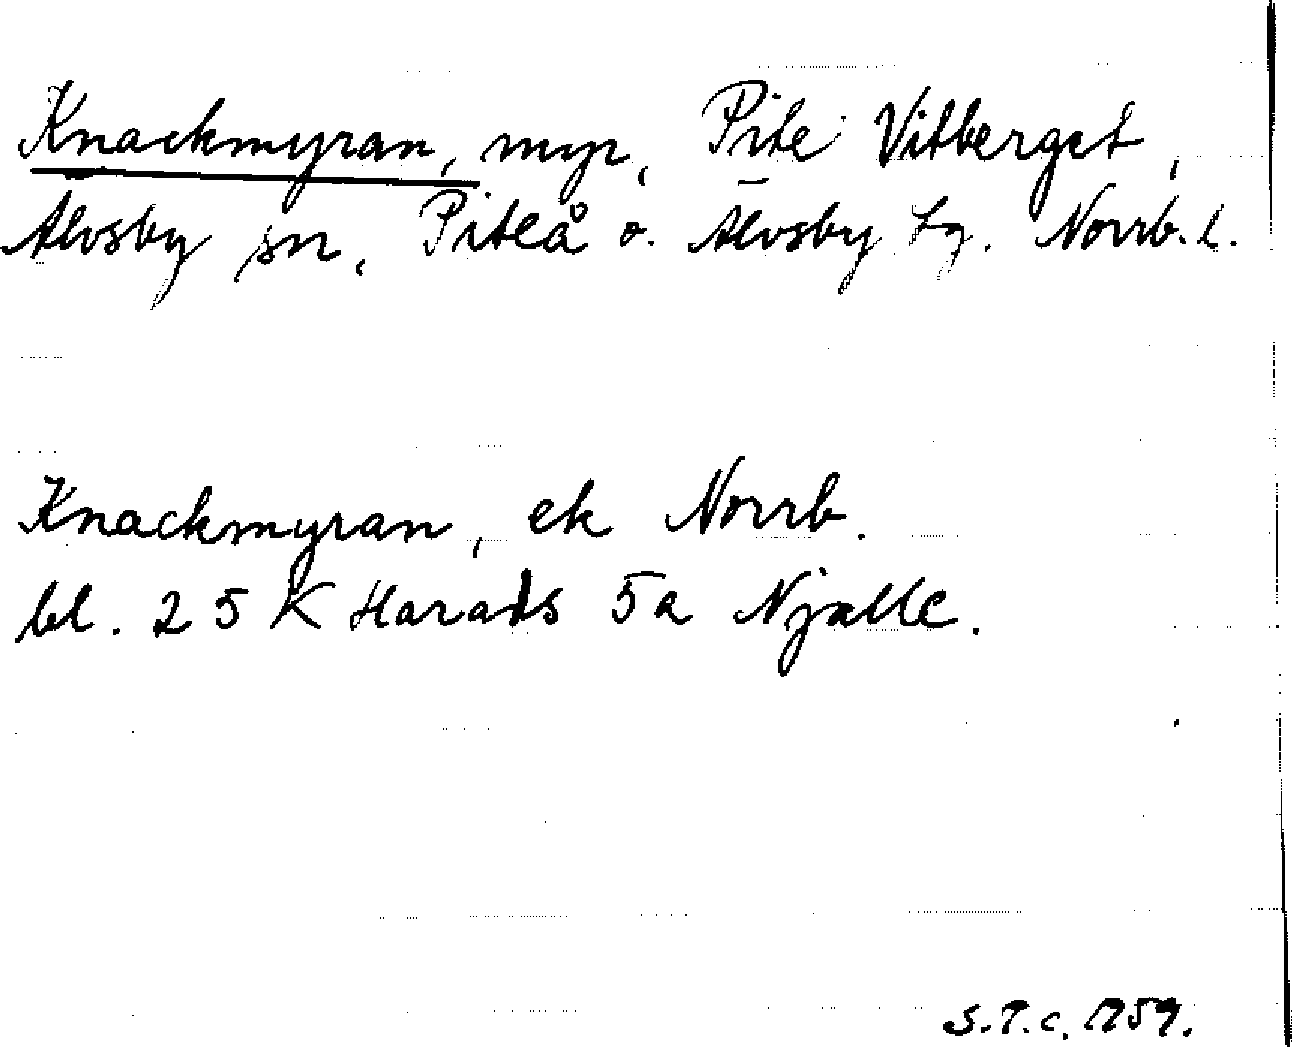 Knackmyran, myr, Pite Vitberget,
Älvsby sn, Piteå o. Älvsby tg. Norrb. l.
Knackmyran, ek Norrb.
bl. 25 K Harads 5a Njalle.
S.T.C. 1759.